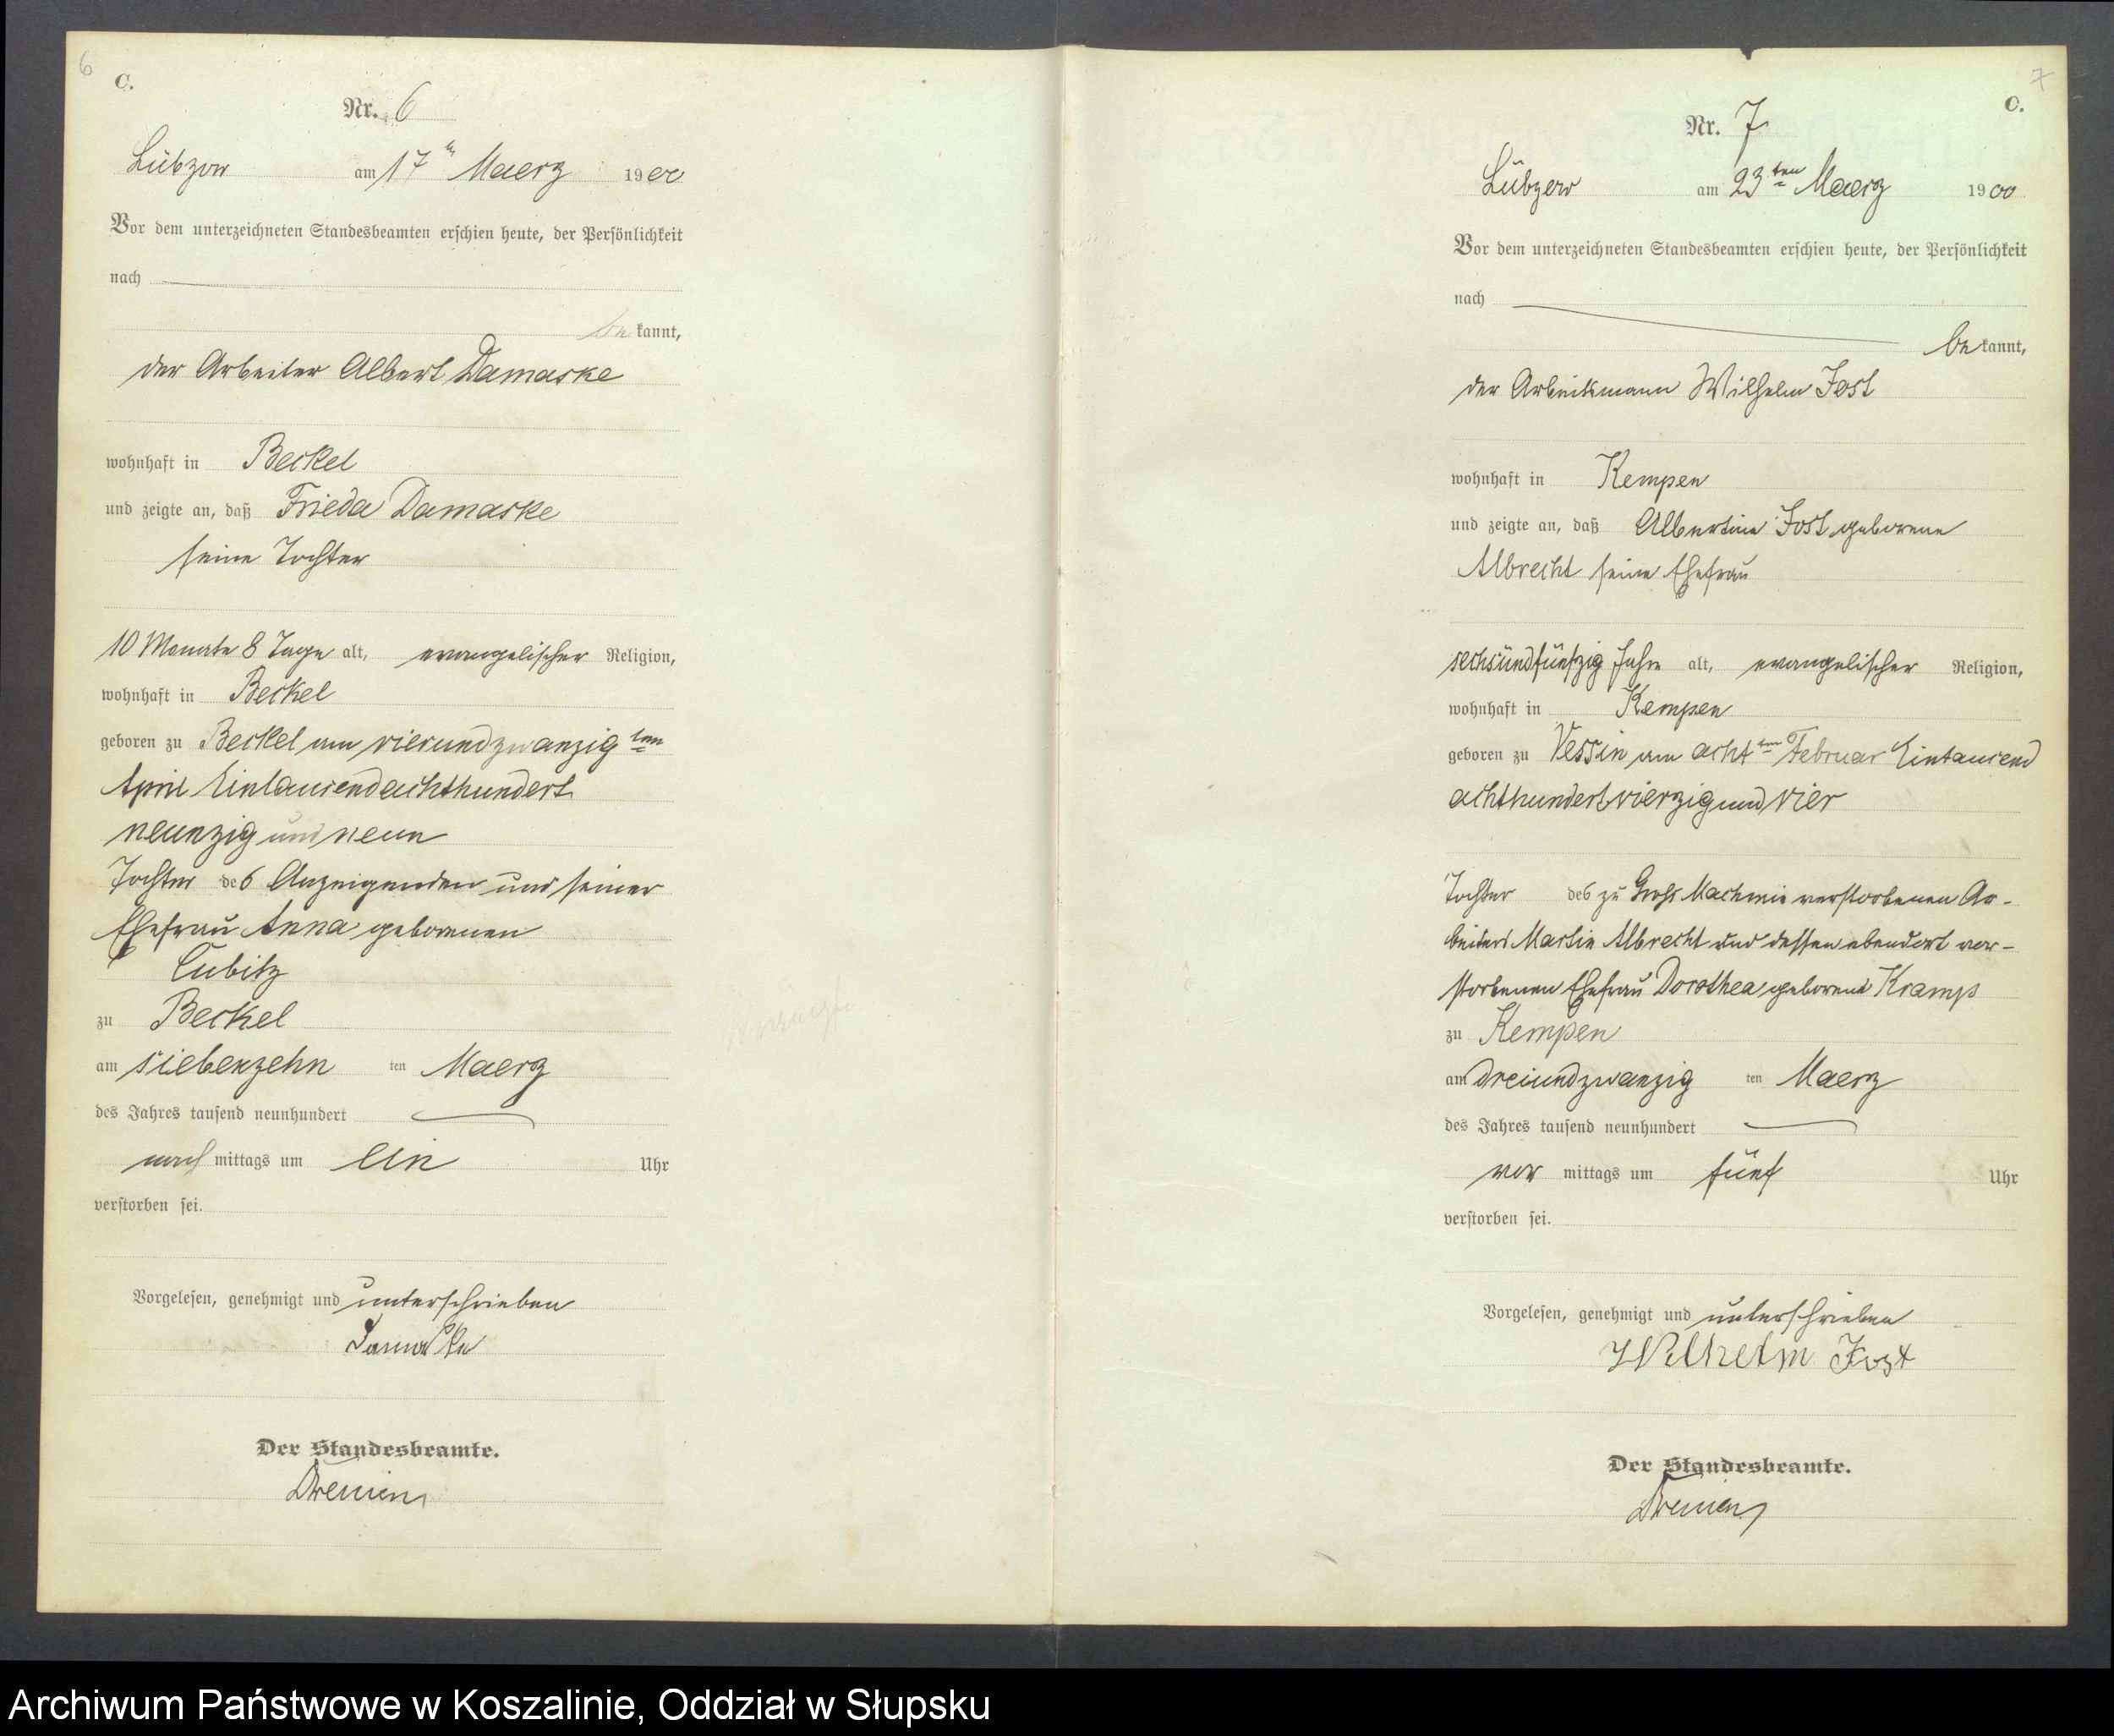 6
C.
Nr. 6
Lübzow am 17ten Maerz 1900
Vor dem unterzeichneten Standesbeamten erschien heute, der Persönlichkeit
nach
be kannt,
der Arbeiter Albert Damaske
wohnhaft in Beckel
und zeigte an, daß Frieda Damaske
seine Tochter
10 Monate 8 Tage alt, evangelischer Religion,
wohnhaft in Beckel
geboren zu Beckel am vierundzwanzigten
April Eintausendachthundert
neunzig und neun
Tochter des Anzeigenden und seiner
Ehefrau Anna geborenen
Cubitz
zu Beckel
am siebenzehn ten Maerz
des Jahres tausend neunhundert
nach mittags um ein Uhr
verstorben sei.
Vorgelesen, genehmigt und unterschrieben
Damaske
Der Standesbeamte.
7
C.
Nr. 7
Lübzow am 23ten Maerz 1900
Vor dem unterzeichneten Standesbeamten erschien heute, der Persönlichkeit
nach
be kannt,
der Arbeitsmann Wilhelm Jost
wohnhaft in Kempen
und zeigte an, daß Albertine Jost geborene
Albrecht seine Ehefrau
sechsundfünfzig Jahre alt, evangelischer Religion,
wohnhaft in Kempen
geboren zu Vessin am achtten Februar Eintausend
achthundert vierzig und vier
Tochter des zu Groß Machmin verstorbenen Ar-
beiters Martin Albrecht und dessen ebendort ver-
storbenen Ehefrau Dorothea geborene Kramp
zu Kempen
am dreiundzwanzig ten Maerz
des Jahres tausend neunhundert
vor mittags um fünf Uhr
verstorben sei.
Vorgelesen, genehmigt und unterschrieben
Wilhelm Jost
Der Standesbeamte.
Archiwum Państwowe w Koszalinie, Oddział w Słupsku